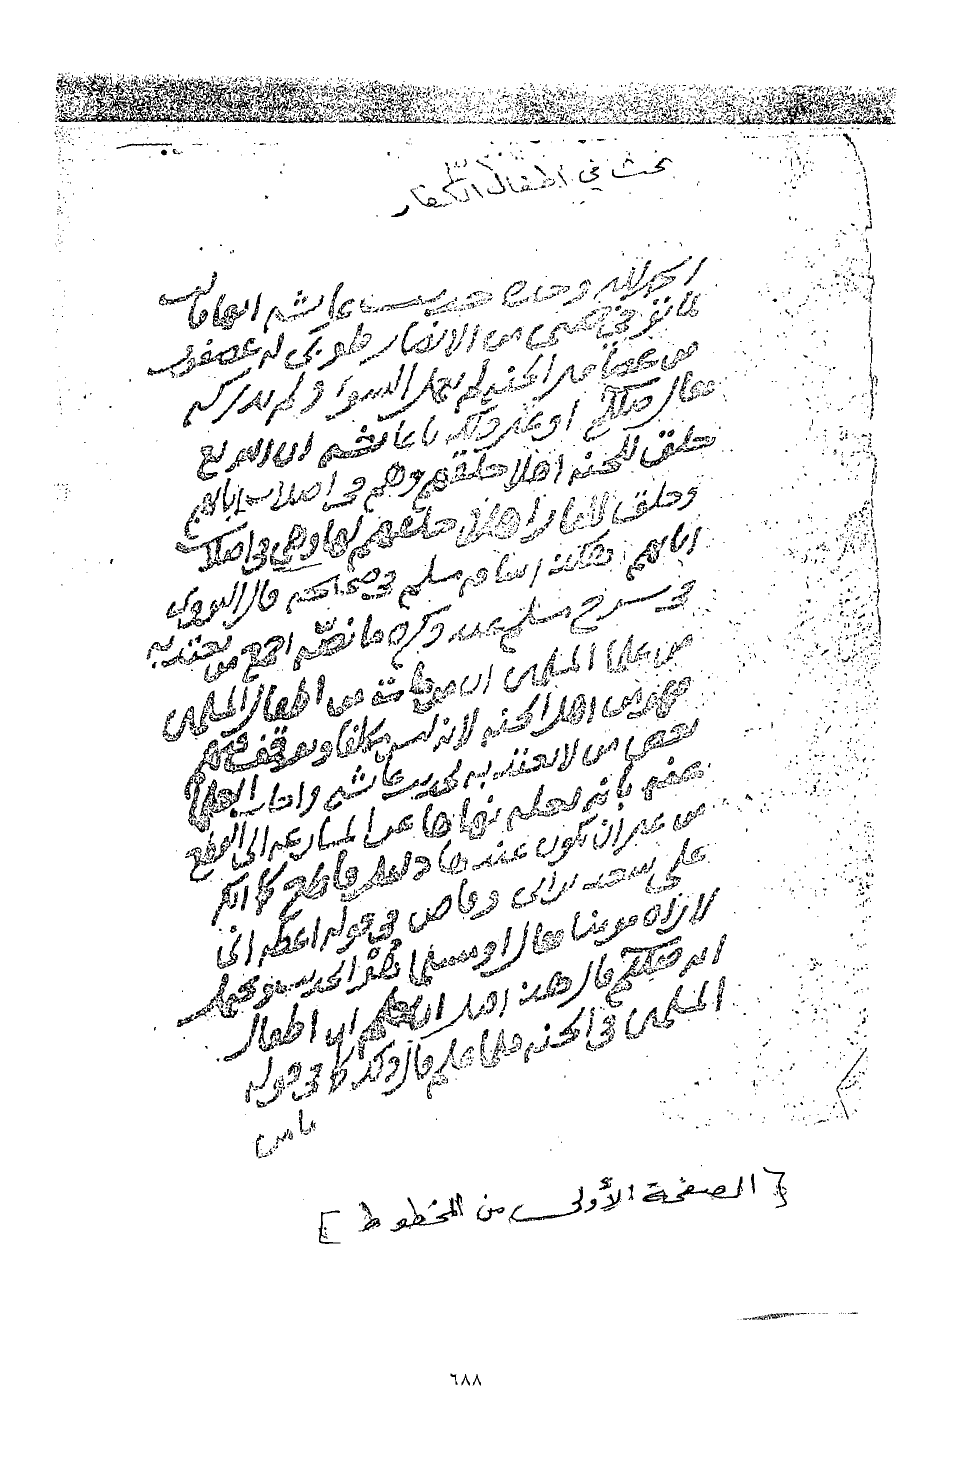 بحث في اطفال الكفار
الحمد لله وحده حديث عايشه انها قالت
لما توفي صبي من الانصار طوبى له عصفور
من عصافير الجنه لم يعمل السوء ولم يدركه
فقال صللم او غير ذلك يا عائشه ان الله
خلق للجنه اهلا خلقهم وهم في اصلاب ابائهم
وخلق للنار اهلا خلقهم لها وهم في اصلاب
ابائهم مسلم في صحيحه قال النووي
في شرح مسلم عند ذكره ما نصه اجمع من يعتد به
من علما المسلمين ان من مات من اطفال المسلمين
فهو من اهل الجنه لانه ليس مكلفا وتوقف فيهم
بعض من لا يعتد به لحديث عايشه واجاب العلما
عنه بانه لعله نهاها عن المسارعه الى القطع
من غير ان يكون عندها دليل قاطع كما انكر
على سعد بن ابي وقاص في قوله اعطه اني
لاراه مومنا فقال او مسلما الحديث ويحتمل
انه صللم قال هذا قبل ان يعلم ان اطفال
المسلمين في الجنه فلما علم قال ذلك كما في قوله
ما من
[الصفحة الأولى من المخطوط]
٦٨٨